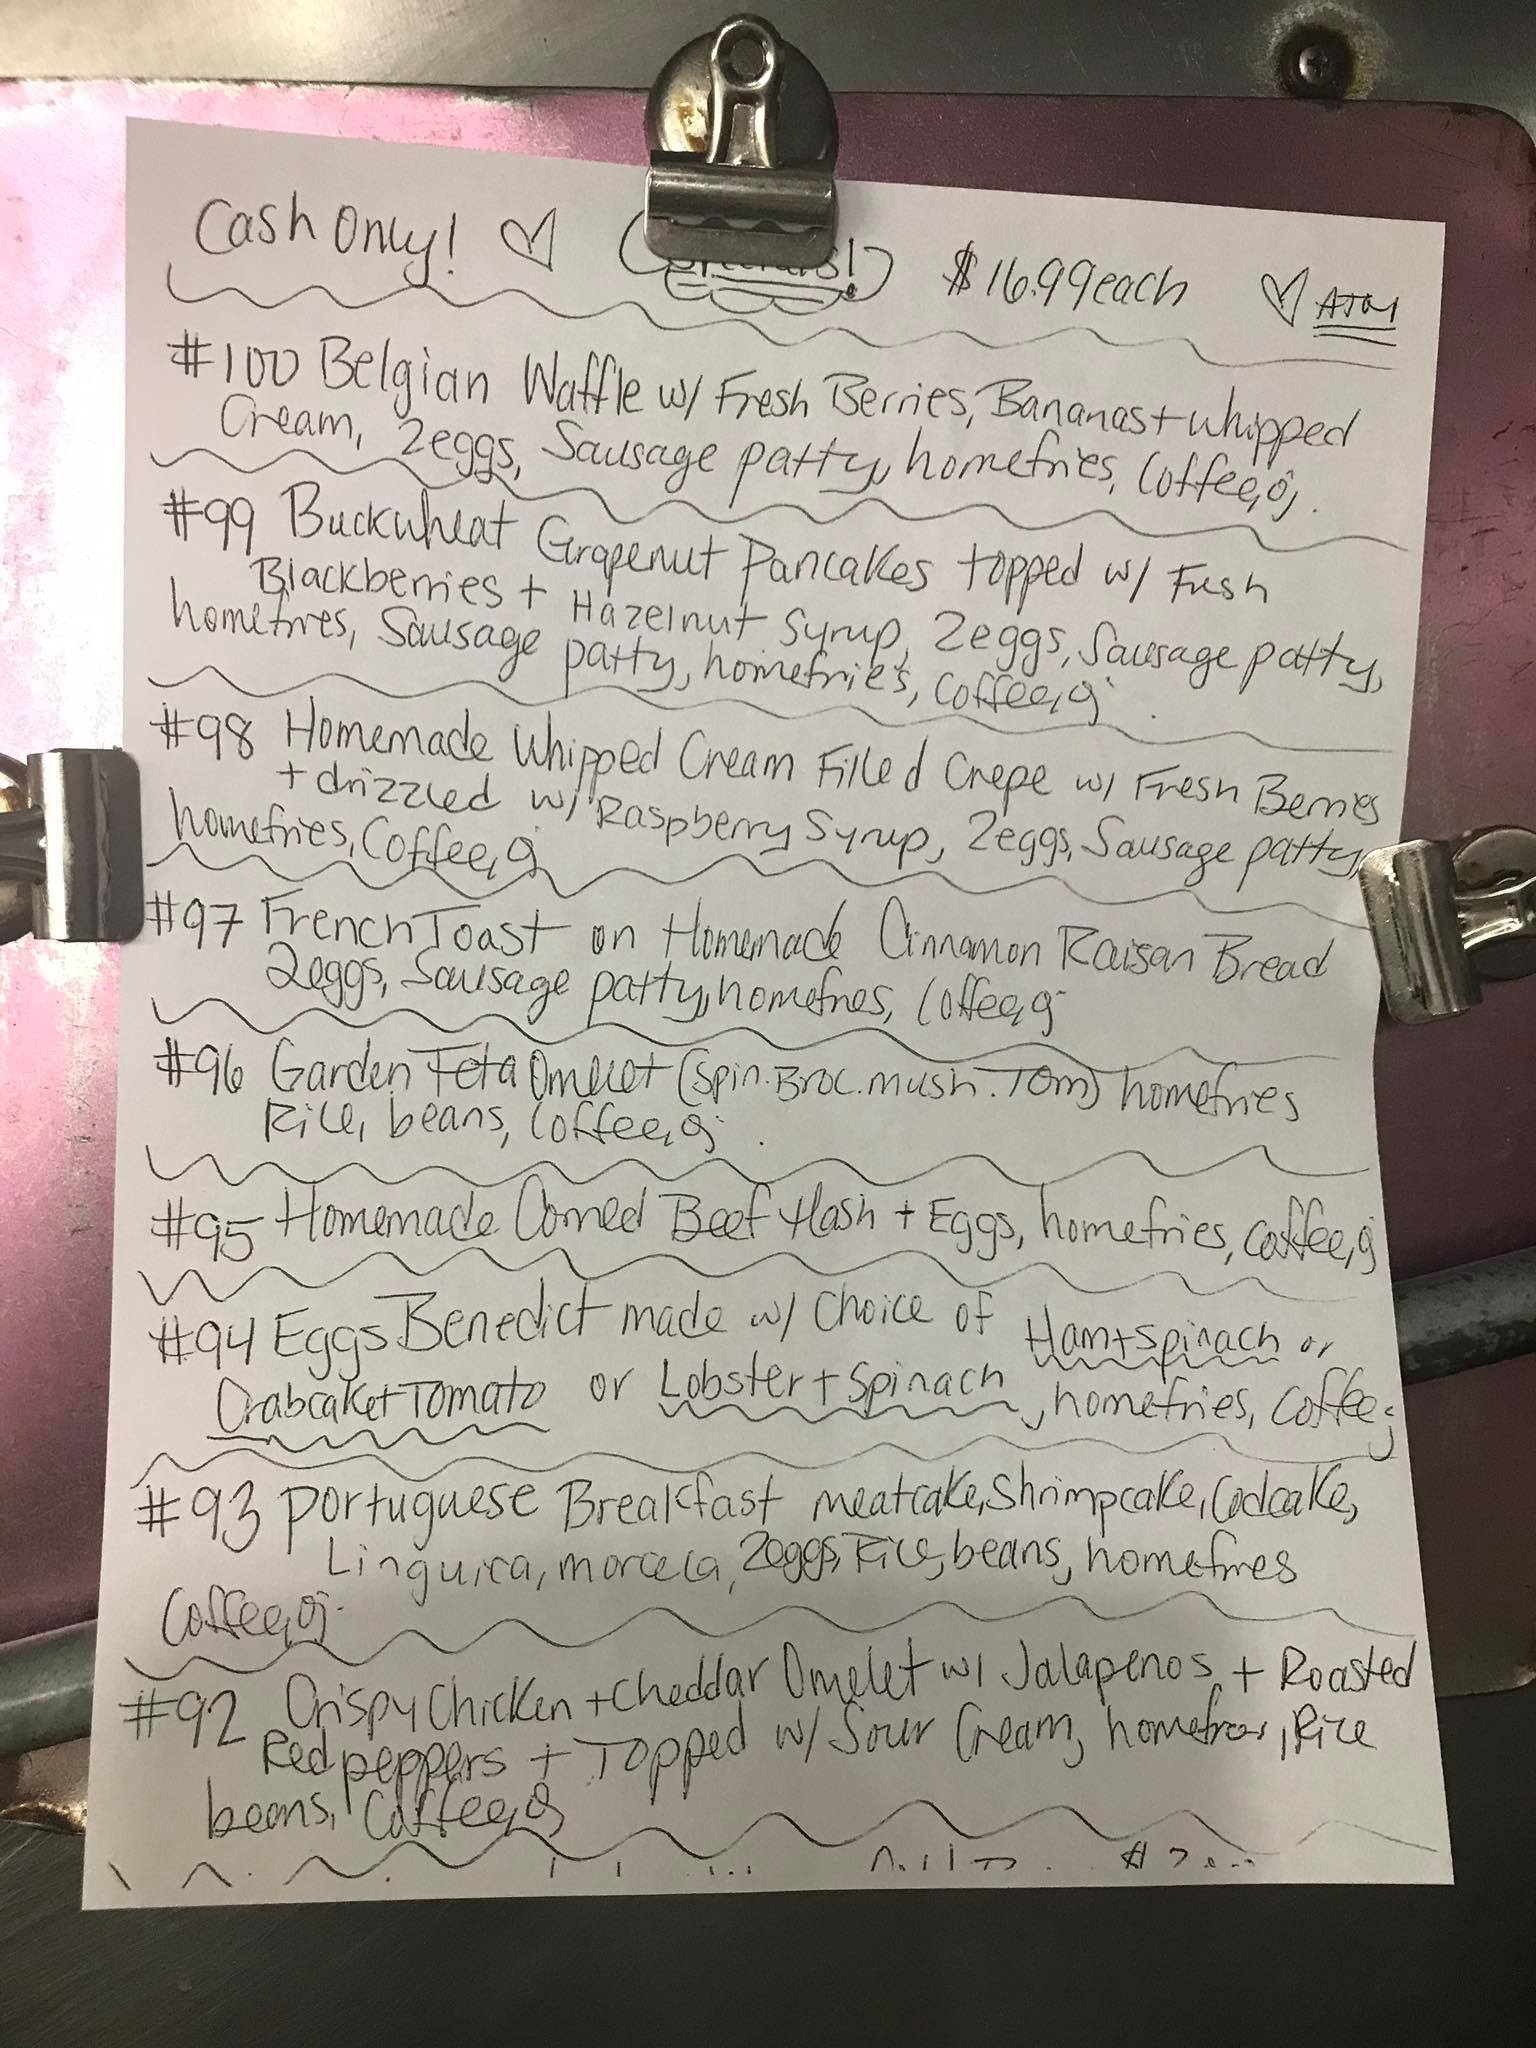 Cash Only! Specials! $16.99 each ATM
#100 Belgian Waffle w/ Fresh Berries, Bananas + whipped
Cream, 2eggs, Sausage patty, homefries, Coffee, oj.
#99 Buckwheat Grapenut Pancakes topped w/ Fresh
Blackberries + Hazelnut Syrup, 2eggs, Sausage patty,
homefries, Sausage patty, homefries, Coffee, oj.
#98 Homemade Whipped Cream Filled Crepe w/ Fresh Berries
+ drizzled w/ Raspberry Syrup, 2eggs, Sausage patty,
homefries, Coffee, oj
#97 French Toast on Homemade Cinnamon Raisan Bread
2eggs, Sausage patty, homefries, Coffee, oj
#96 Garden Feta Omelet (Spin. Broc. mush. Tom) homefries
Rice, beans, Coffee, oj.
#95 Homemade Corned Beef Hash + Eggs, homefries, Coffee, oj
#94 Eggs Benedict made w/ Choice of Ham + spinach or
Crabcake + Tomato or Lobster + Spinach, homefries, Coffee,
#93 portuguese Breakfast meatcake, Shrimpcake, Codcake,
Linguica, morcela, 2eggs, Rice, beans, homefries
Coffee, oj.
#92 Crispy Chicken + Cheddar Omelet w/ Jalapenos + Roasted
Red peppers + Topped w/ Sour Cream, homefries, Rice
beans, Coffee, oj